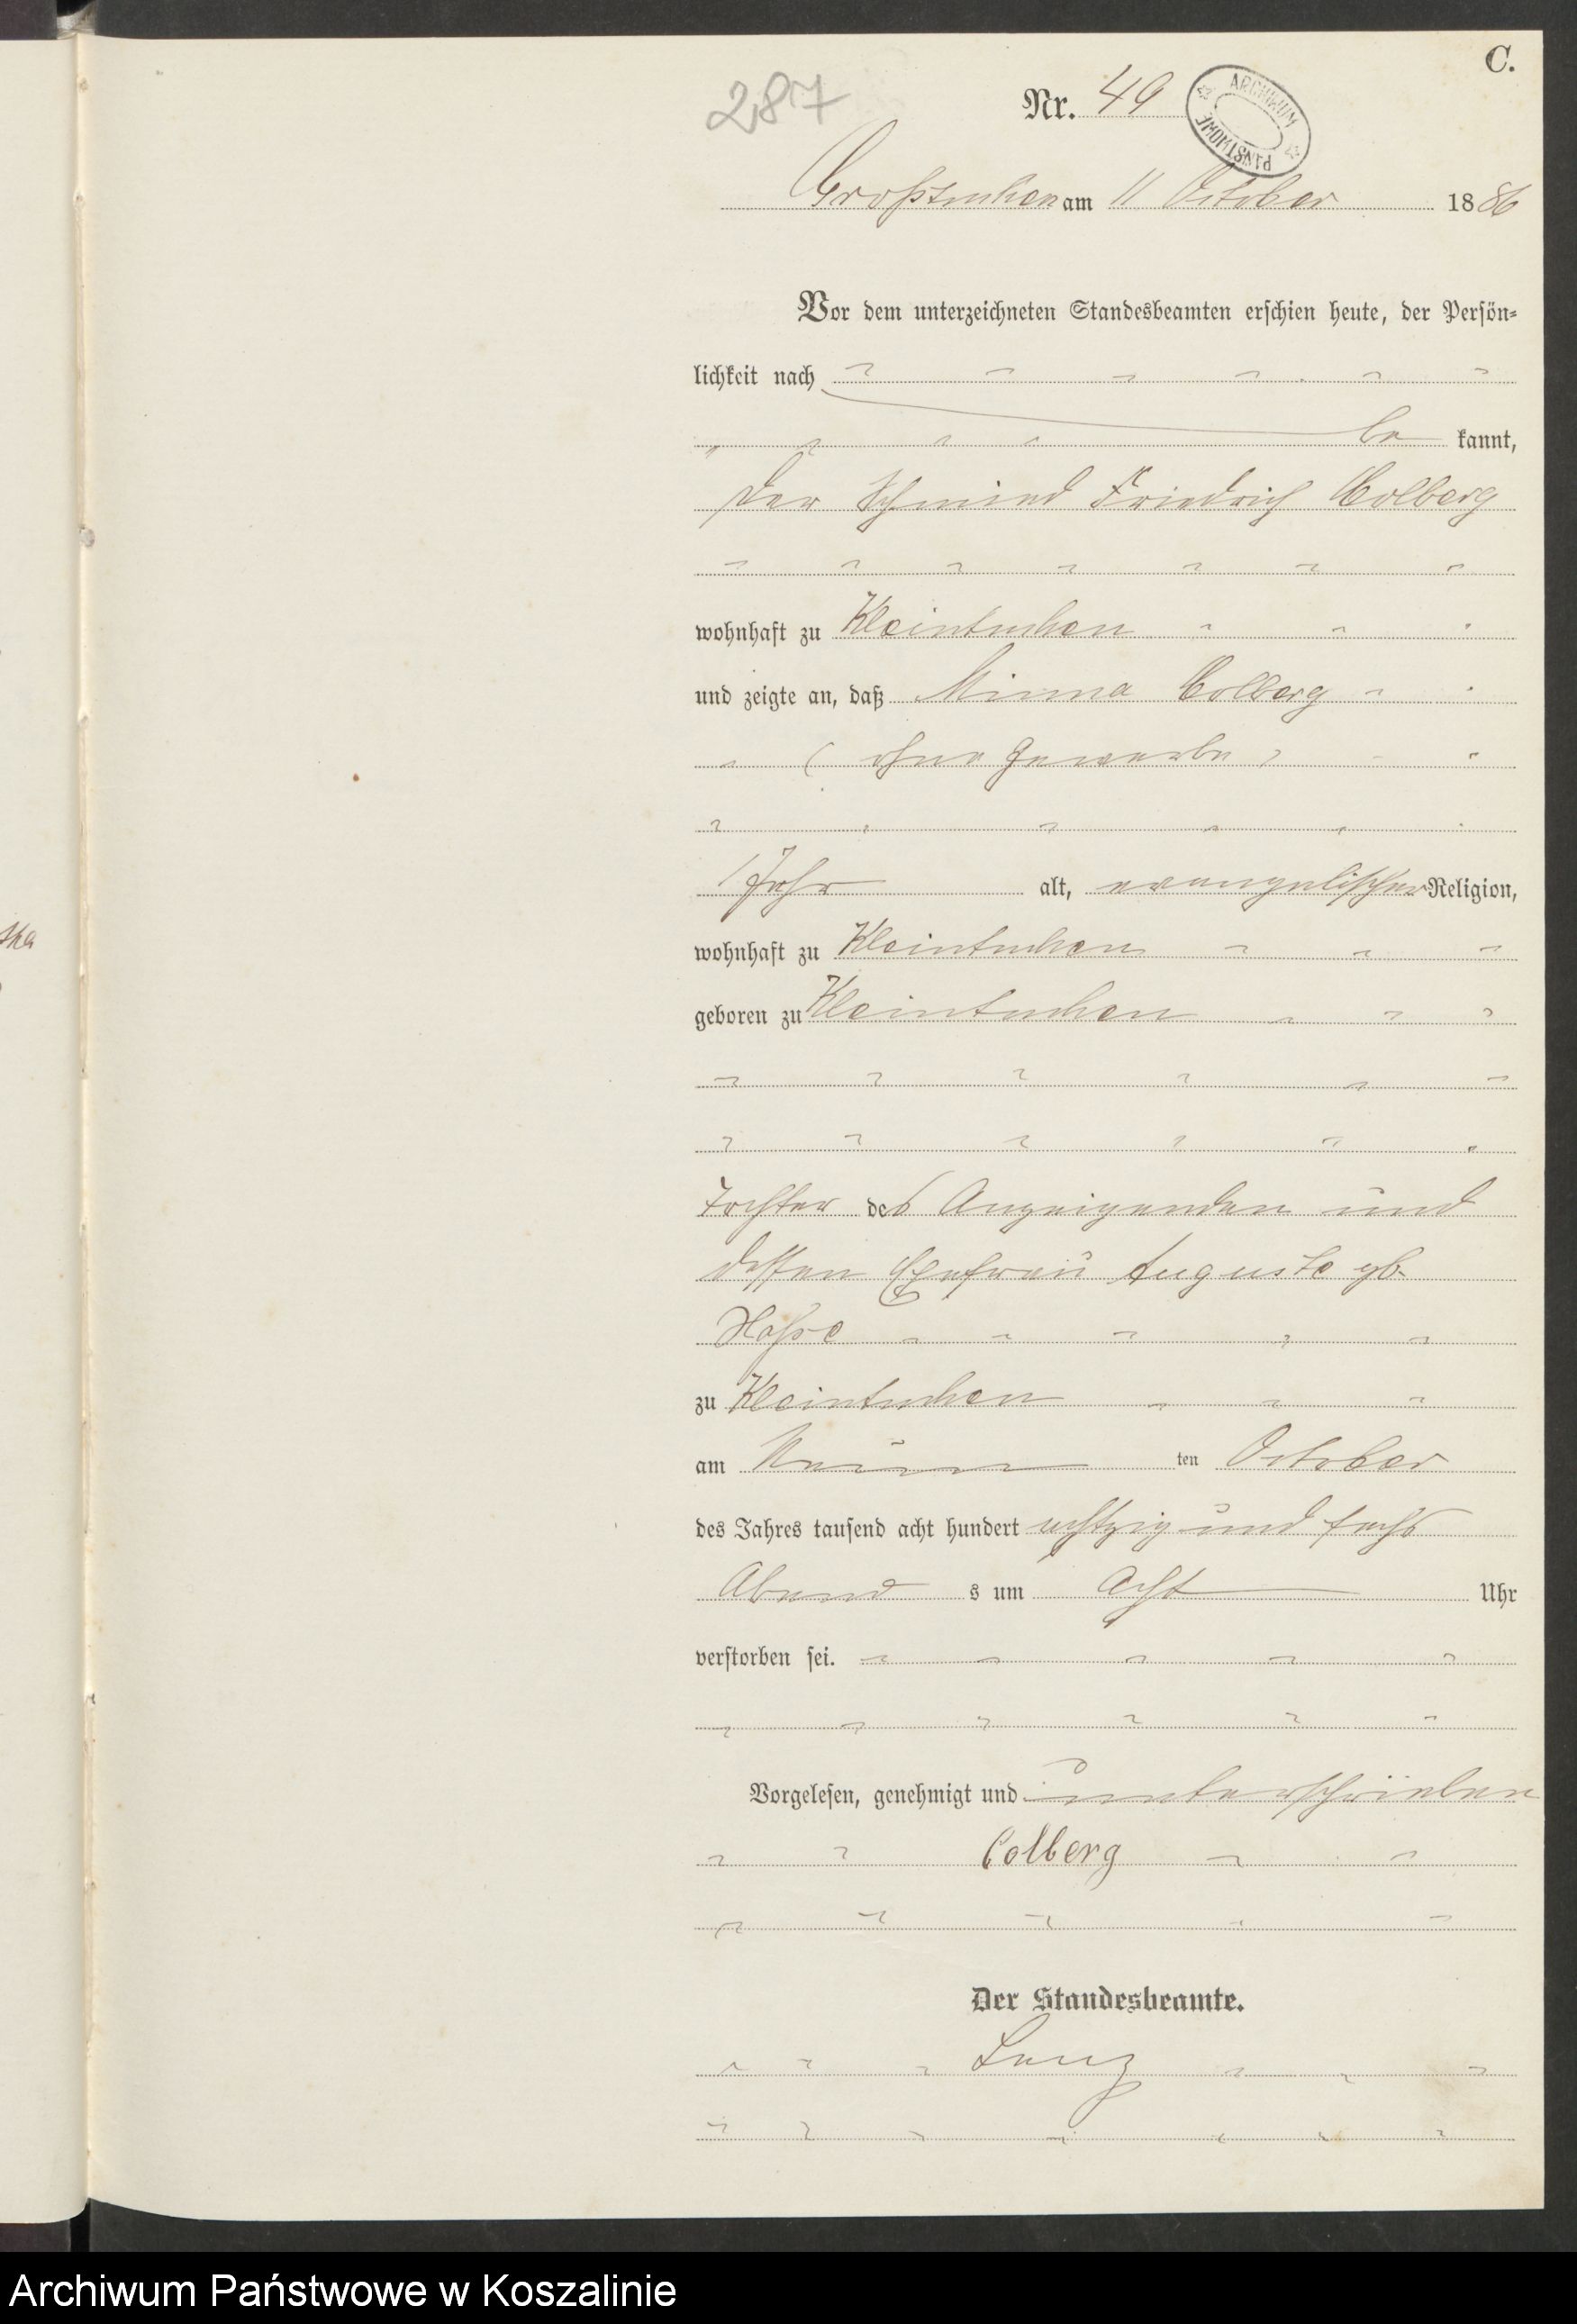 C.
287
Nr. 49
ARCHIWUM PAŃSTWOWE
Großtuchen am 11 October 1886
Vor dem unterzeichneten Standesbeamten erschien heute, der Persön-
lichkeit nach
be kannt,
der Schmied Friedrich Colberg
wohnhaft zu Kleintuchen
und zeigte an, daß Minna Colberg
( ohne Gewerbe )
1 Jahr alt, evangelischer Religion,
wohnhaft zu Kleintuchen
geboren zu Kleintuchen
Tochter des Anzeigenden und
dessen Ehefrau Auguste gb
zu Kleintuchen
am Neun ten October
des Jahres tausend acht hundert achtzig und sechs
Abend s um Acht Uhr
verstorben sei.
Vorgelesen, genehmigt und unterschrieben
Colberg
Der Standesbeamte.
ska
Archiwum Państwowe w Koszalinie